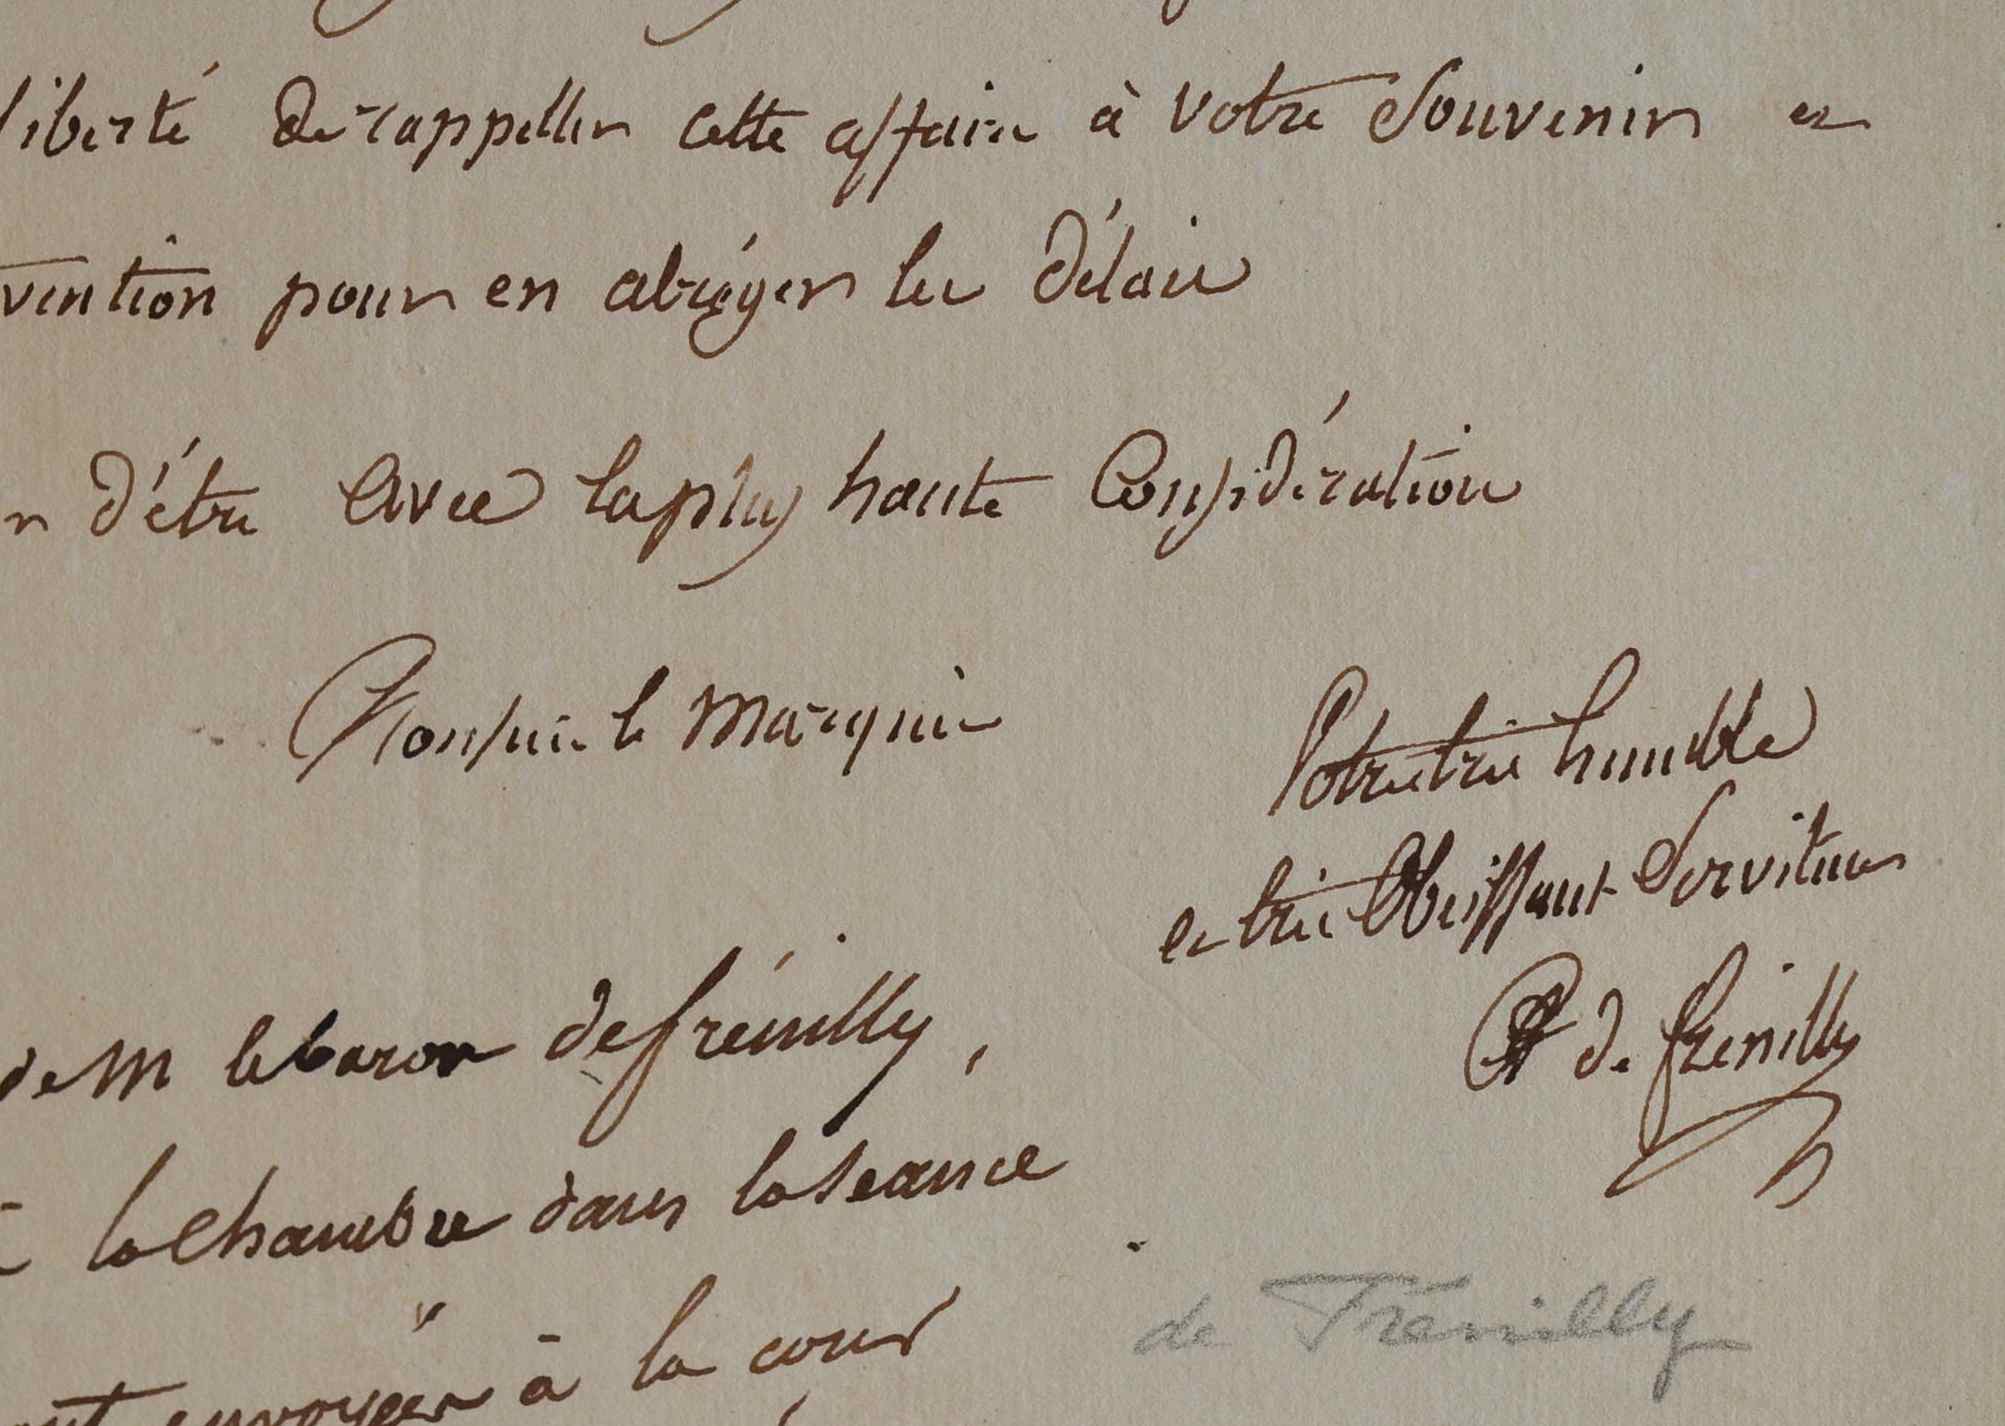 liberté de rappeller cette affaire à votre Souvenir et
vention pour en abréger les délais
d'être avec la plus haute Considération
Monsieur le Marquis
Votre très humble
et très Obeissant Serviteur
de frenilly
de M le baron de frénilly,
à la Chambre dans la seance
envoyer à la cour
de Frénilly